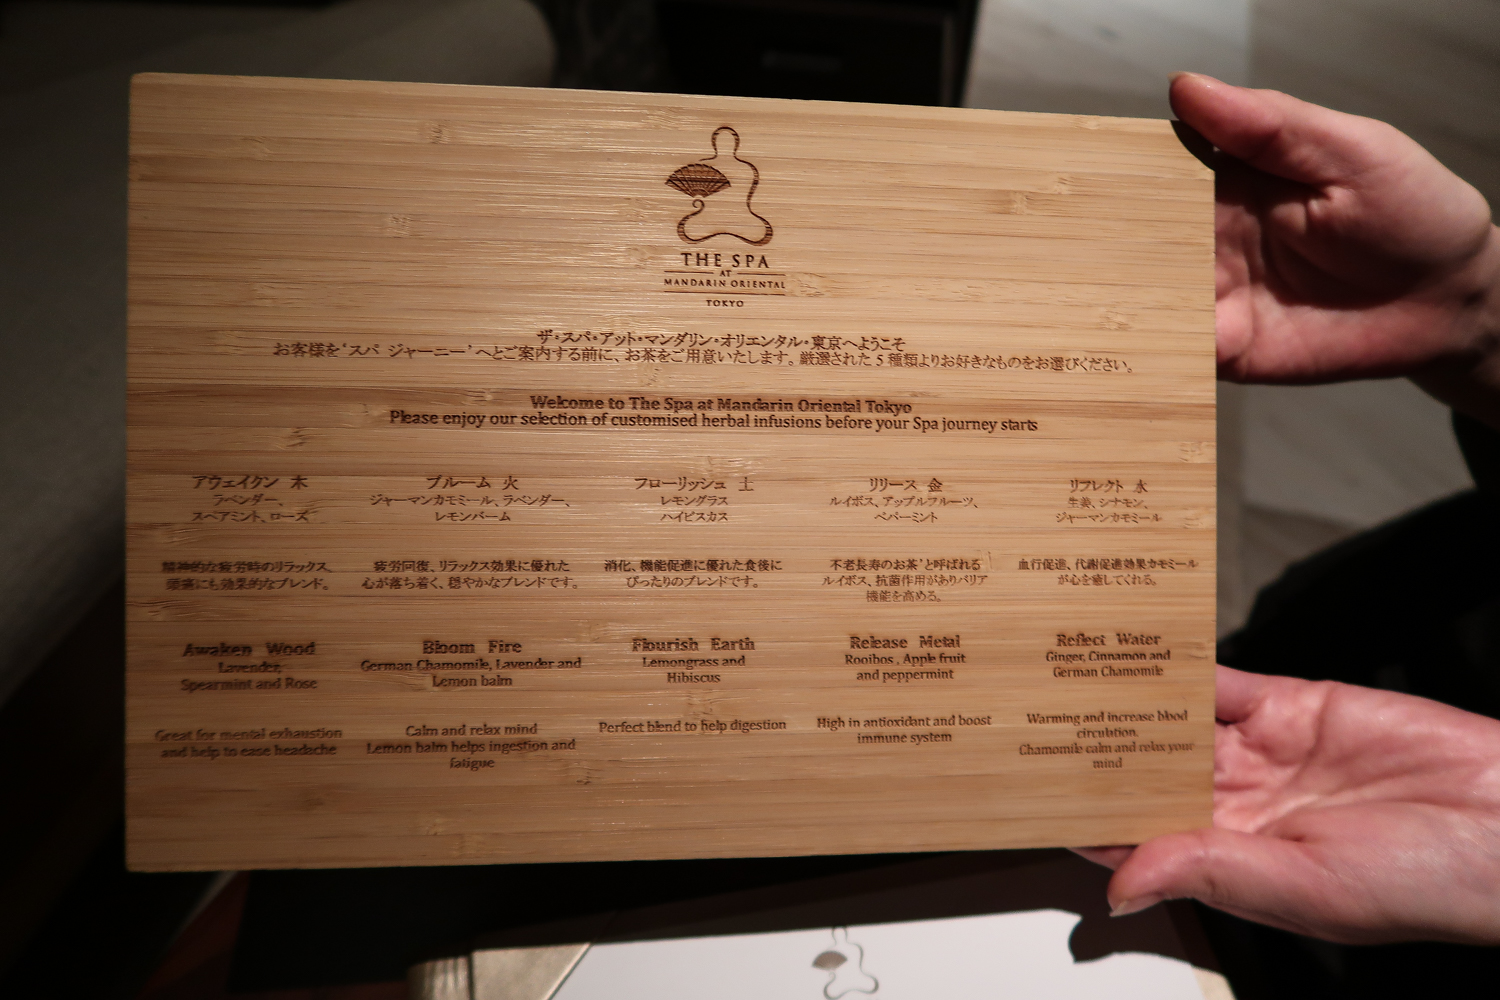 THE SPA
AT
MANDARIN ORIENTAL
TOKYO
ザ・スパ・アット・マンダリン・オリエンタル・東京へようこそ
お客様を‘スパ ジャーニー’へとご案内する前に、お茶をご用意いたします。厳選された 5 種類よりお好きなものをお選びください。
Welcome to The Spa at Mandarin Oriental Tokyo
Please enjoy our selection of customised herbal infusions before your Spa journey starts
アウェイクン 木
ラベンダー、
スペアミント、ローズ
ブルーム 火
ジャーマンカモミール、ラベンダー、
レモンバーム
フローリッシュ 土
レモングラス
ハイビスカス
リリース 金
ルイボス、アップルフルーツ、
ペパーミント
リフレクト 水
生姜、シナモン、
ジャーマンカモミール
精神的な疲労時のリラックス、
頭痛にも効果的なブレンド。
疲労回復、リラックス効果に優れた
心が落ち着く、穏やかなブレンドです。
消化、機能促進に優れた食後に
ぴったりのブレンドです。
不老長寿のお茶’と呼ばれる
ルイボス、抗菌作用がありバリア
機能を高める。
血行促進、代謝促進効果カモミール
が心を癒してくれる。
Awaken Wood
Lavender,
Spearmint and Rose
Bloom Fire
German Chamomile, Lavender and
Lemon balm
Flourish Earth
Lemongrass and
Hibiscus
Release Metal
Rooibos , Apple fruit
and peppermint
Reflect Water
Ginger, Cinnamon and
German Chamomile
Great for mental exhaustion
and help to ease headache
Calm and relax mind
Lemon balm helps ingestion and
fatigue
Perfect blend to help digestion
High in antioxidant and boost
immune system
Warming and increase blood
circulation.
Chamomile calm and relax your
mind